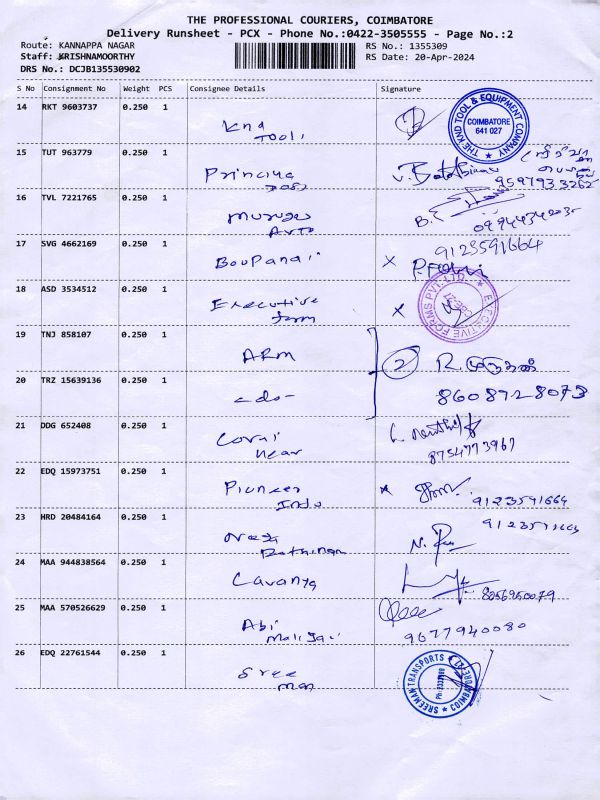 THE PROFESSIONAL COURIERS, COIMBATORE
Delivery Runsheet - PCX - Phone No.:0422-3505555 - Page No.:2
Route: KANNAPPA NAGAR
RS No.: 1355309
Staff: KRISHNAMOORTHY
RS Date: 20-Apr-2024
DRS No.: DCJB135530902
S No Consignment No Weight PCS Consignee Details Signature
14 RKT 9603737 0.250 1
Knd
Tools
THE KND TOOL & EQUIPMENT COMPANY
COIMBATORE
641 027
15 TUT 963779 0.250 1
9597933262
16 TVL 7221765 0.250 1
Murugu
Auto
17 SVG 4662169 0.250 1
Boopandi
9123591664
18 ASD 3534512 0.250 1
Executive
form
EXECUTIVE FORMS PVT. LTD.
CBE-27
19 TNJ 858107 0.250 1
ARM
2
20 TRZ 15639136 0.250 1
-do-
8608728073
21 DDG 652408 0.250 1
8754773967
22 EDQ 15973751 0.250 1
Pioneer
Indu
9123591664
23 HRD 20484164 0.250 1
24 MAA 944838564 0.250 1
Lavanya
25 MAA 570526629 0.250 1
Abi
9677940080
26 EDQ 22761544 0.250 1
Sree
man
SREEMAN TRANSPORTS